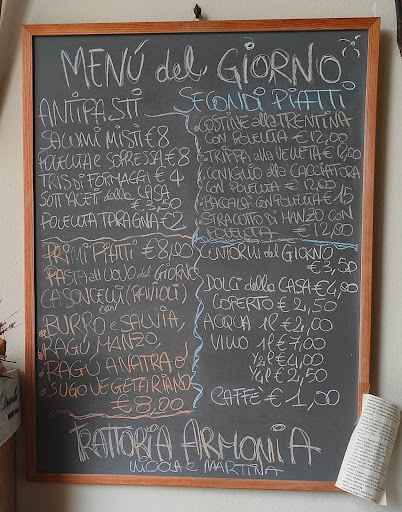 MENÚ del GIORNO
ANTIPASTI
SALUMI MISTI € 8
POLENTA E SOPRESSA € 8
TRIS DI FORMAGGI € 4
SOTTACETI della CASA
€ 3,50
POLENTA TARAGNA € 2
PRIMI PIATTI € 8,00
PASTA all'UOVO del GIORNO
CASONCELLI (RAVIOLI)
con
BURRO e SALVIA,
RAGÚ MANZO,
RAGÚ ANATRA o
SUGO VEGETARIANO
€ 8,00
SECONDI PIATTI
COSTINE alla TRENTINA
CON POLENTA € 12,00
TRIPPA alla VENETA €
CONIGLIO alla CACCIATORA
CON POLENTA € 12,00
BACCALÀ CON POLENTA € 15
STRACOTTO di MANZO CON
POLENTA € 12,00
CONTORNI del GIORNO
€ 3,50
DOLCI della CASA € 4,00
COPERTO € 2,50
ACQUA 1l € 2,00
VINO 1l € 7,00
1/2 l € 4,00
1/4 l € 2,50
CAFFÈ € 1,00
TRATTORIA ARMONIA
NICOLA E MARTINA